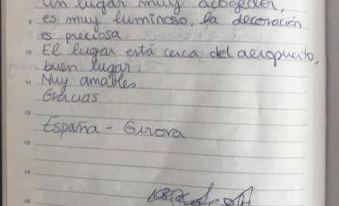 un lugar muy acogedor,
es muy luminoso, la decoración
es preciosa
El lugar está cerca del aeropuerto,
buen lugar.
Muy amables
Gracias
España - Girona